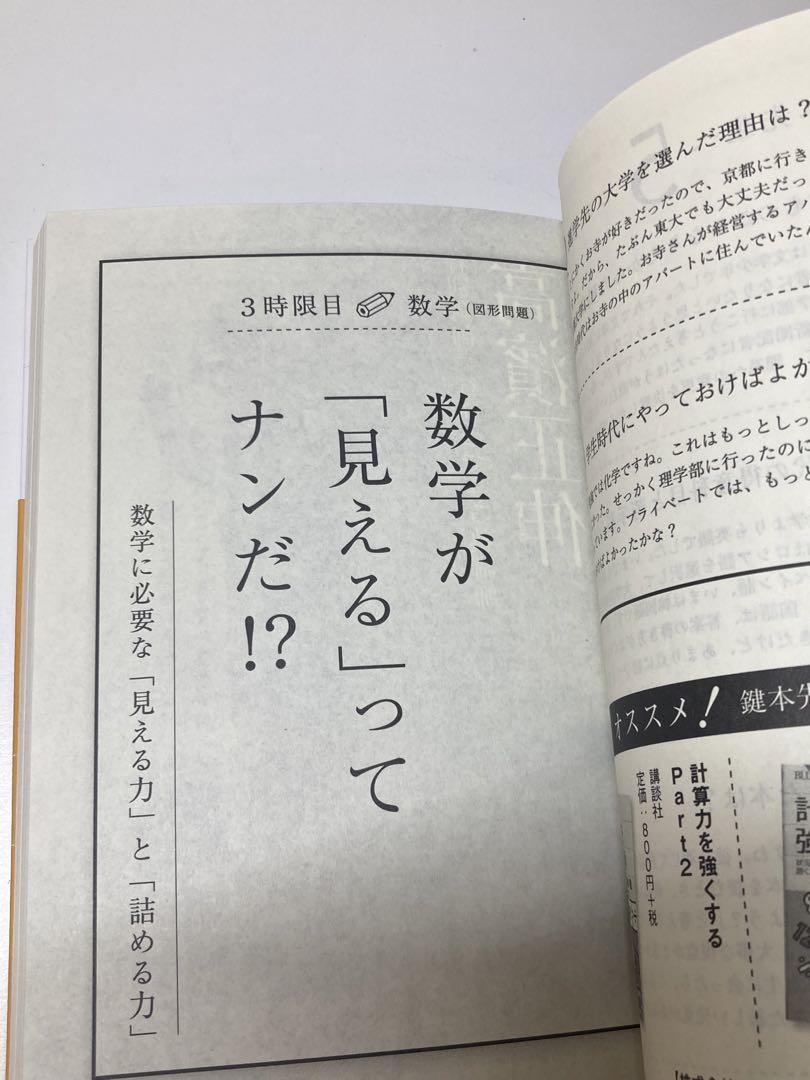 3時限目 数学(図形問題)
数学が
「見える」って
ナンだ!?
数学に必要な「見える力」と「詰める力」
高濱正伸
学先の大学を選んだ理由は?
かくお寺が好きだったので、京都に行き
だから、たぶん東大でも大丈夫だっ
にしました。お寺さんが経営するアパ
代はお寺の中のアパートに住んでいたん
学生時代にやっておけばよか
では化学ですね。これはもっとしっ
った。せっかく理学部に行ったのに
ています。プライベートでは、もっと
ばよかったかな?
オススメ! 鍵本先
計算力を強くする
Part2
講談社
定価:800円+税